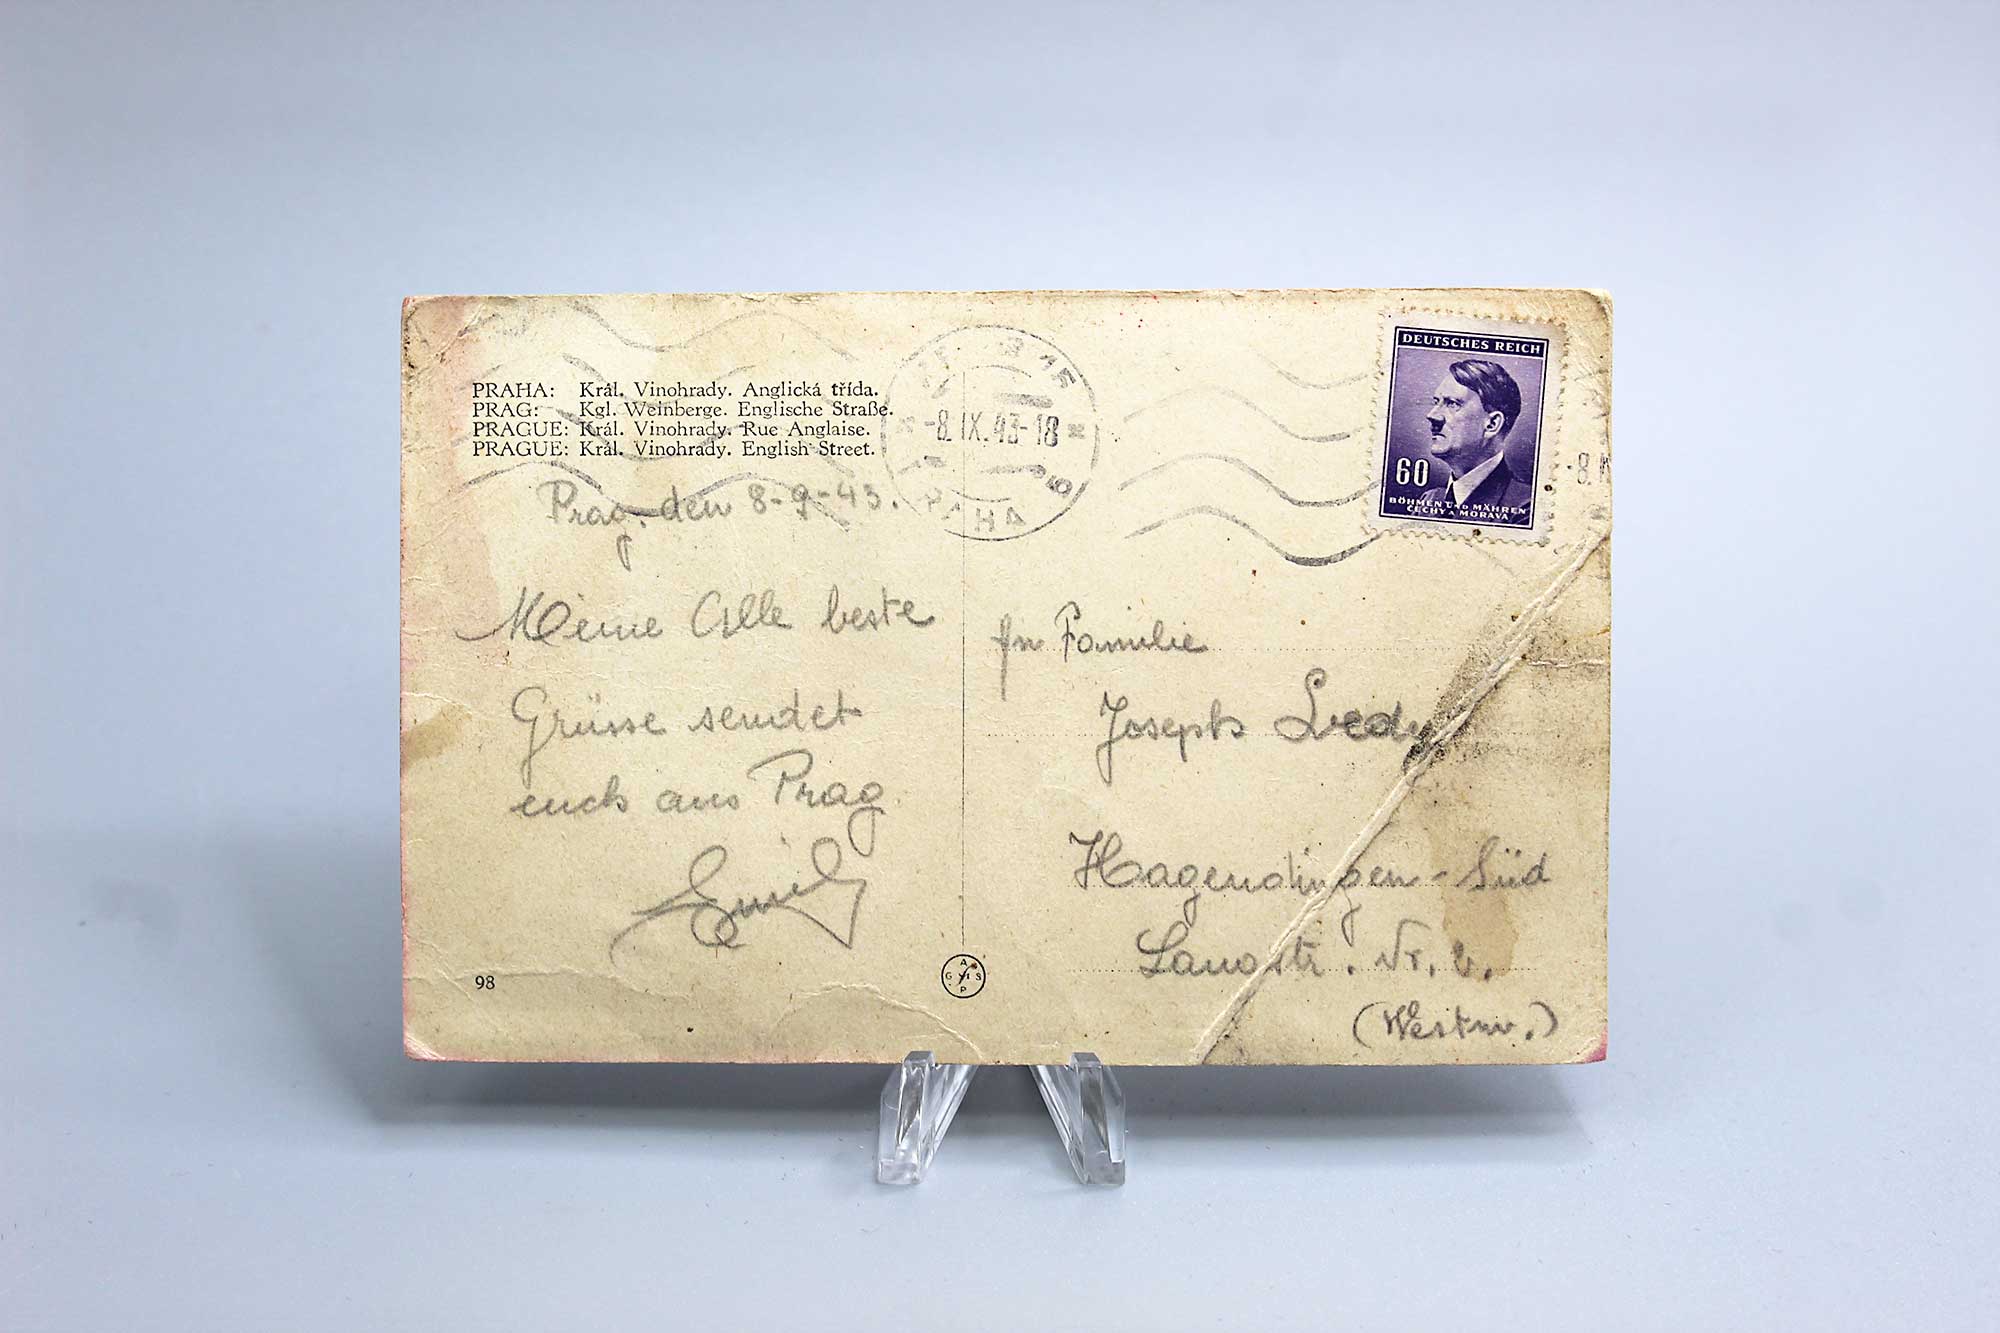 PRAHA: Král. Vinohrady. Anglická třída.
PRAG: Kgl. Weinberge. Englische Straße.
PRAGUE: Král. Vinohrady. Rue Anglaise.
PRAGUE: Král. Vinohrady. English Street.
-8.IX.43-18
PRAHA
DEUTSCHES REICH
60
BÖHMEN UND MÄHREN
ČECHY A MORAVA
Prag, den 8-9-43.
Meine Alle beste
Grüsse sendet
euch aus Prag
Emil
Familie
Joseph
Hagendingen-Süd
Langstr. Nr.
(Westm.)
98